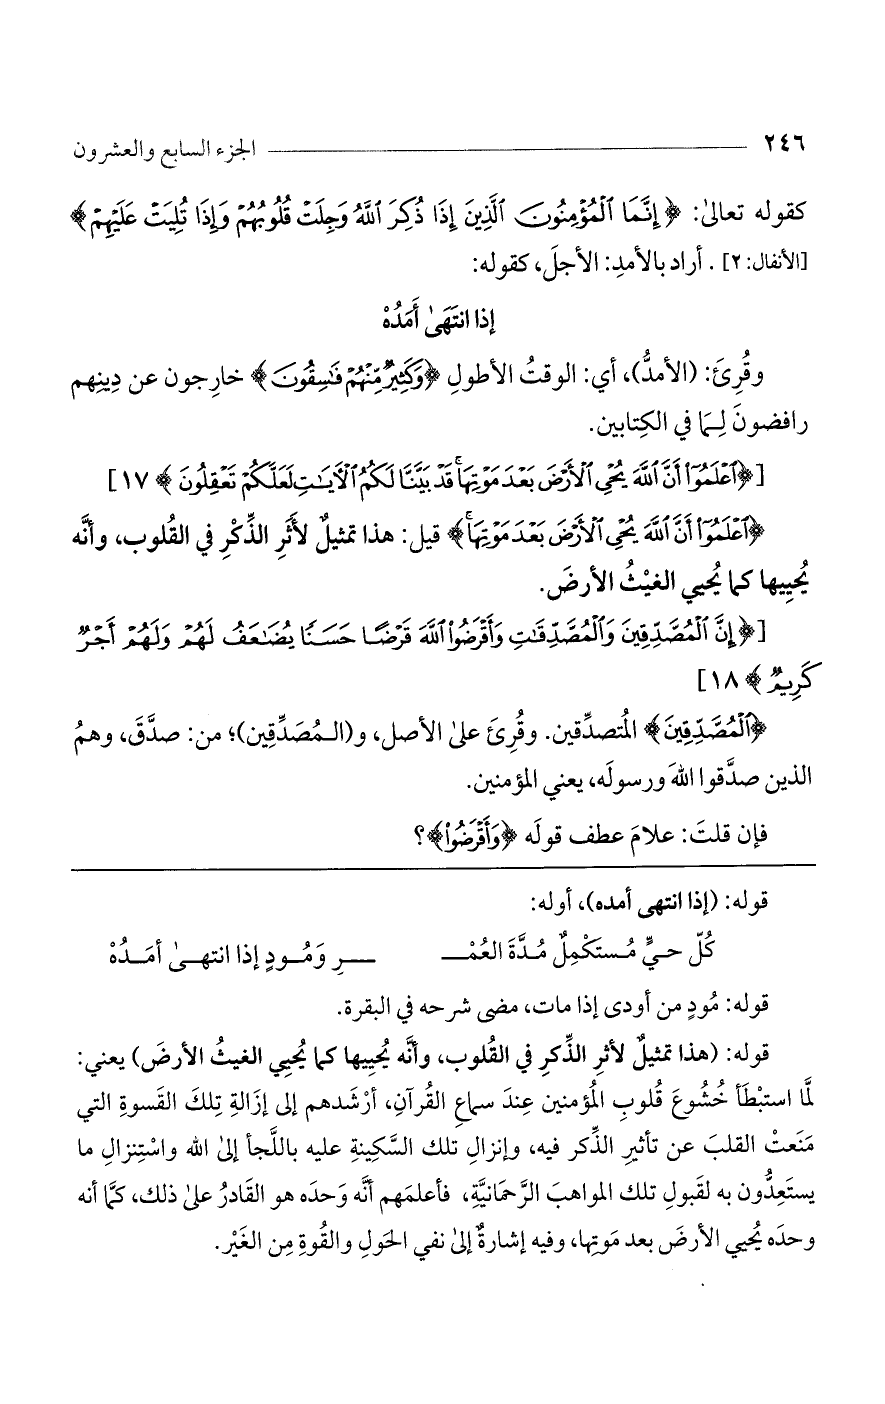 ٢٤٦ الجزء السابع والعشرون
كقوله تعالىٰ: ﴿إِنَّمَا ٱلْمُؤْمِنُونَ ٱلَّذِينَ إِذَا ذُكِرَ ٱللَّهُ وَجِلَتْ قُلُوبُهُمْ وَإِذَا تُلِيَتْ عَلَيْهِمْ﴾
[الأنفال: ٢]. أراد بالأمدِ: الأجلَ، كقوله:
إذا انتَهَىٰ أَمَدُهْ
وقُرِئَ: (الأمدُّ)، أي: الوقتُ الأطولِ ﴿وَكَثِيرٌ مِّنْهُمْ فَـٰسِقُونَ﴾ خارِجون عن دِينِهم
رافضونَ لِـمَا في الكِتابين.
[﴿ٱعْلَمُوٓا۟ أَنَّ ٱللَّهَ يُحْىِ ٱلْأَرْضَ بَعْدَ مَوْتِهَا ۚ قَدْ بَيَّنَّا لَكُمُ ٱلْآيَـٰتِ لَعَلَّكُمْ تَعْقِلُونَ﴾ ١٧]
﴿ٱعْلَمُوٓا۟ أَنَّ ٱللَّهَ يُحْىِ ٱلْأَرْضَ بَعْدَ مَوْتِهَا ۚ﴾ قيل: هذا تمثيلٌ لأثَرِ الذِّكْرِ في القُلوب، وأنَّه
يُحيِيها كما يُحيي الغيْثُ الأرضَ.
[﴿إِنَّ ٱلْمُصَّدِّقِينَ وَٱلْمُصَّدِّقَـٰتِ وَأَقْرَضُوا۟ ٱللَّهَ قَرْضًا حَسَنًا يُضَـٰعَفُ لَهُمْ وَلَهُمْ أَجْرٌ
كَرِيمٌ﴾ ١٨]
﴿ٱلْمُصَّدِّقِينَ﴾ المُتصدِّقين. وقُرِئَ علىٰ الأصل، و(الـمُصَدِّقِين)؛ من: صدَّقَ، وهمُ
الذين صدَّقوا اللهَ ورسولَه، يعني المؤمنين.
فإن قلتَ: علامَ عطف قولَه ﴿وَأَقْرَضُوا۟﴾؟
قوله: (إذا انتهى أمده)، أوله:
كُلّ حيٍّ مُـستَكْمِلٌ مُـدَّةَ العُمْـ ـرِ وَمُـودٍ إذا انتهـىٰ أمَـدُهْ
قوله: مُودٍ من أودى إذا مات، مضى شرحه في البقرة.
قوله: (هذا تمثيلٌ لأثرِ الذِّكرِ في القُلوب، وأنَّه يُحيِيها كما يُحيي الغيثُ الأرضَ) يعني:
لمَّا استبْطَأ خُشُوعَ قُلوبِ المُؤمنين عِندَ سماعِ القُرآنِ، أرْشَدهم إلى إزَالةِ تِلكَ القَسوةِ التي
مَنَعتْ القلبَ عن تأثيرِ الذِّكر فيه، وإنزالِ تلك السَّكينةِ عليه باللَّجأ إلىٰ الله واسْتِنزالِ ما
يستَعِدُّون به لقَبولِ تلك المواهبَ الرَّحمَانيَّةِ، فأعلمَهم أنَّه وَحدَه هو القَادرُ علىٰ ذلك، كمَّا أنه
وحدَه يُحيي الأرضَ بعد مَوتِها، وفيه إشارةٌ إلىٰ نفي الحَولِ والقُوةِ مِن الغَيْر.